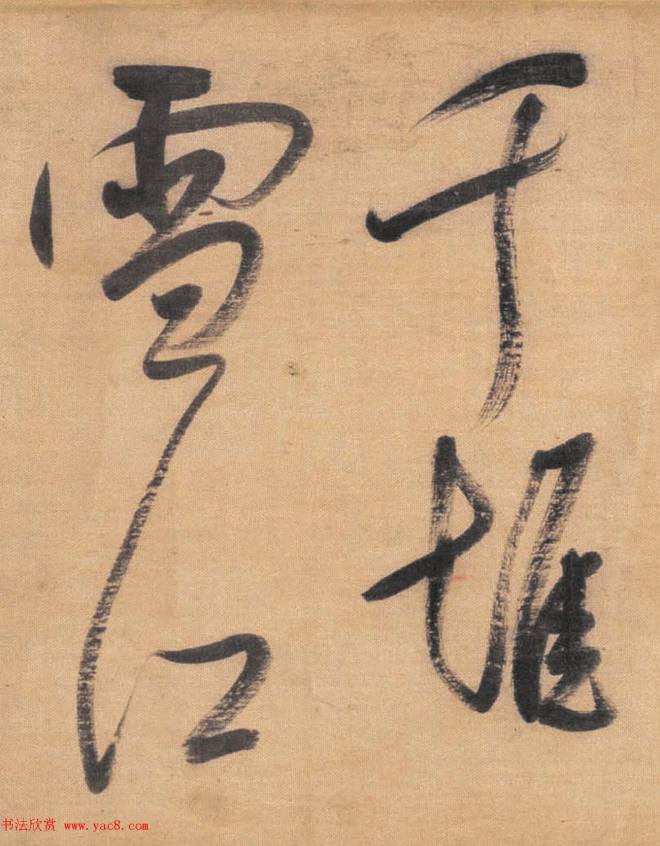 千堆
雪江
书法欣赏 www.yac8.com